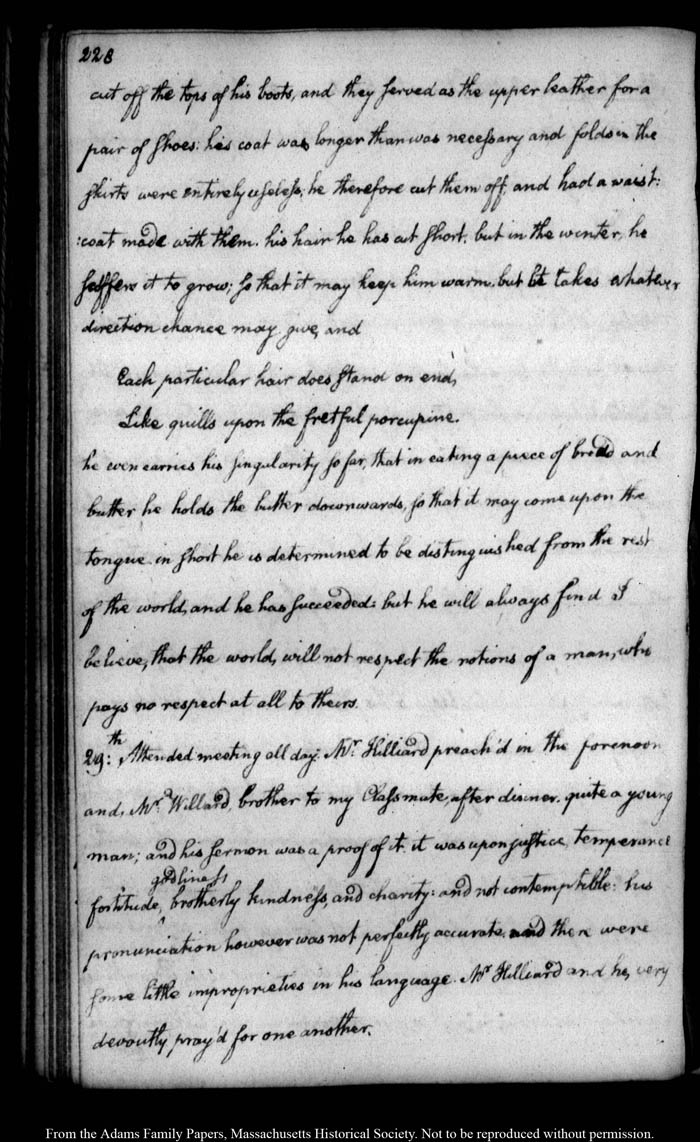 228
cut off the tops of his boots, and they served as the upper leather for a
pair of shoes: his coat was longer than was necessary and folds in the
skirts were entirely useless; he therefore cut them off, and had a waist:
:coat made with them. his hair he has cut short. but in the winter, he
suffers it to grow; so that it may keep him warm. but it takes whatever
direction chance may give, and
Each particular hair does stand on end,
Like quills upon the fretful porcupine.
he even carries his singularity so far, that in eating a piece of bread and
butter he holds the butter downwards, so that it may come upon the
tongue. in short he is determined to be distinguished from the rest
of the world, and he has succeeded: but he will always find I
believe, that the world, will not respect the notions of a man, who
pays no respect at all to theirs.
29:th Attended meeting all day. Mr. Hilliard preach'd in the forenoon
and, Mr. Willard, brother to my Classmate, after dinner. quite a young
man; and his sermon was a proof of it. it was upon justice, temperance
godliness,
fortitude, brotherly kindness, and charity: and not contemptible: his
pronunciation however was not perfectly accurate. and there were
some little improprieties in his language. Mr. Hilliard and he, very
devoutly pray'd for one another.
From the Adams Family Papers, Massachusetts Historical Society. Not to be reproduced without permission.